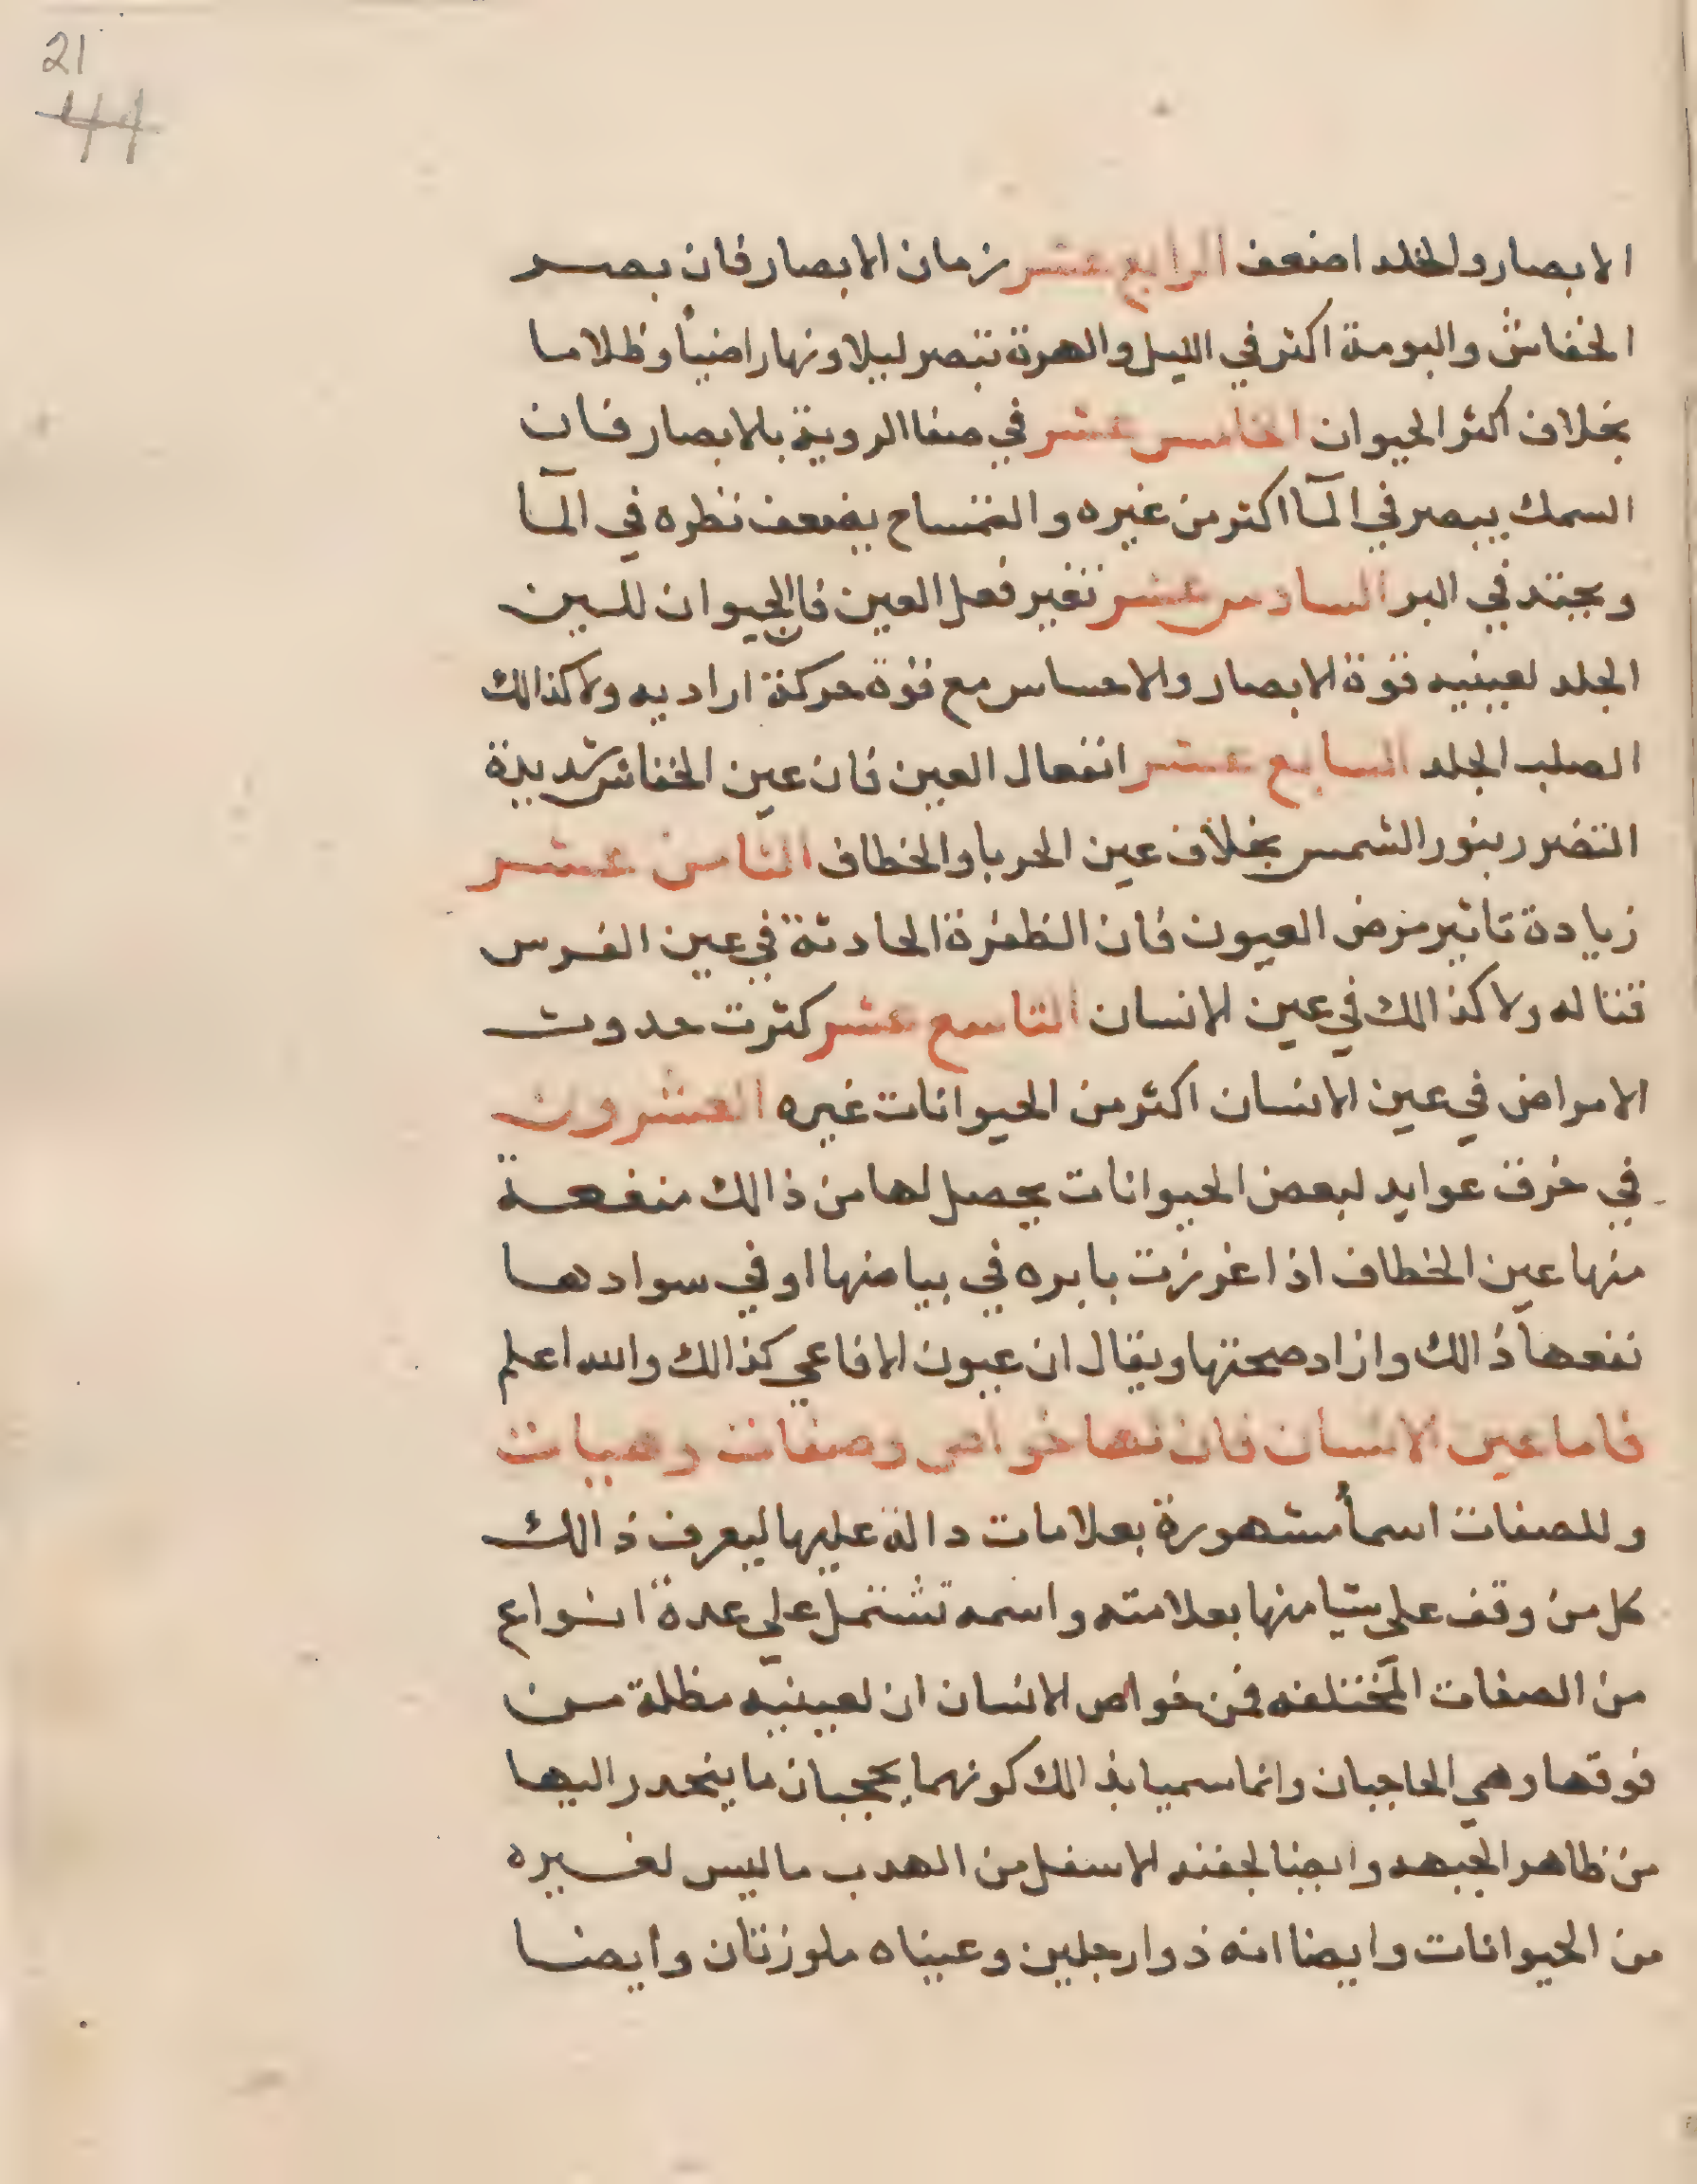 21
44
الابصار والخلد اضعف الرابع عشر زمان الابصار فان بصر
الخفاش والبومة اكثر في الليل والهرة تبصر ليلا ونهارا ضيأ وظلاما
بخلاف اكثر الحيوان الخامس عشر في صفا الروية بالابصار فان
السمك يبصر في المآ اكثر من غيره والتمساح يضعف نظره في المآ
ويحتد في البر السادس عشر تغير فعل العين فالحيوان للين
الجلد لعينيه قوة الابصار والاحساس مع قوة حركة اراديه ولا كذالك
الصلب الجلد السابع عشر انفعال العين فان عين الخفاش شديدة
التضرر بنور الشمس بخلاف عين الحربا والخطاف الثامن عشر
زيادة تاثير مرض العيون فان الظفرة الحادثة في عين الفرس
قتاله ولا كذالك في عين الانسان التاسع عشر كثرت حدوث
الامراض في عين الانسان اكثر من الحيوانات غيره العشرون
في خرق عوايد لبعض الحيوانات يحصل لها من ذالك منفعة
منها عين الخطاف اذا غرزت بابره في بياضها او في سوادها
نفعها ذالك وازاد صحتها ويقال ان عيون الافاعي كذالك والله اعلم
فاما عين الانسان فان لها خواص وصفات وهيات
وللصفات اسمأ مشهورة بعلامات دالة عليها ليعرف ذالك
كل من وقف على شيا منها بعلامته واسمه تشتمل علي عدة انواع
من الصفات المختلفه فمن خواص الانسان ان لعينيه مظلة من
فوقها وهي الحاجبان وانما سميا بذالك كونهما يحجبان ما ينحدر اليها
من ظاهر الجبهه وايضا لجفنه الاسفل من الهدب ما ليس لغيره
من الحيوانات وايضا انه ذوا رجلين وعيناه ملوزتان وايضا